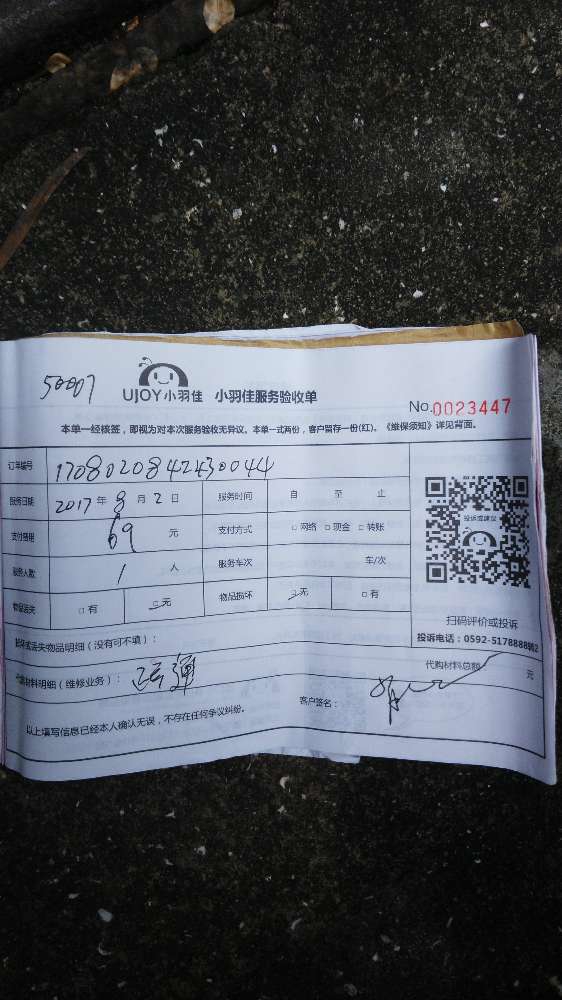 50007
UJOY小羽佳 小羽佳服务验收单
No.0023447
本单一经核签，即视为对本次服务验收无异议。本单一式两份，客户留存一份(红)。《维保须知》详见背面。
订单编号 1708020842430044
服务日期 2017年8月2日 服务时间 自 至 止
支付费用 69 元 支付方式 □网络 □现金 □转账
服务人数 1 人 服务车次 车/次
物品丢失 □有 □无 物品损坏 □无 □有
投诉或建议
扫码评价或投诉
投诉电话：0592-5178888
损坏或丢失物品明细（没有可不填）：
代购材料明细（维修业务）： 疏通 代购材料总额 元
以上填写信息已经本人确认无误，不存在任何争议纠纷。 客户签名：